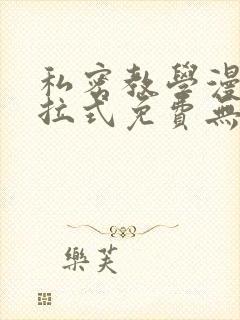 私密教學漫
拉式免費無
樂芙